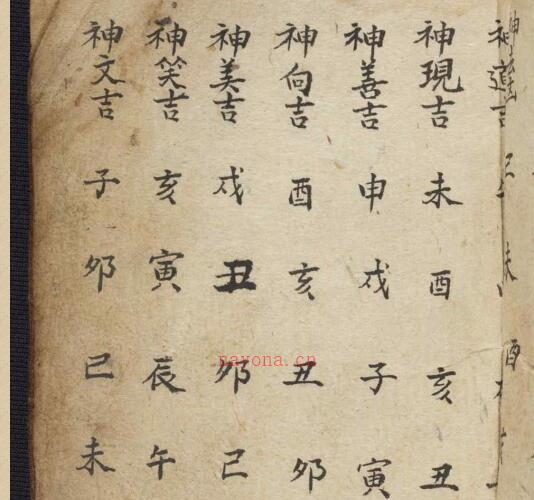 未 酉
神現吉 未 酉 亥 丑
神善吉 申 戌 子 寅
神向吉 酉 亥 丑 卯
神美吉 戌 丑 卯 巳
神笑吉 亥 寅 辰 午
神文吉 子 卯 巳 未
nayona.cn